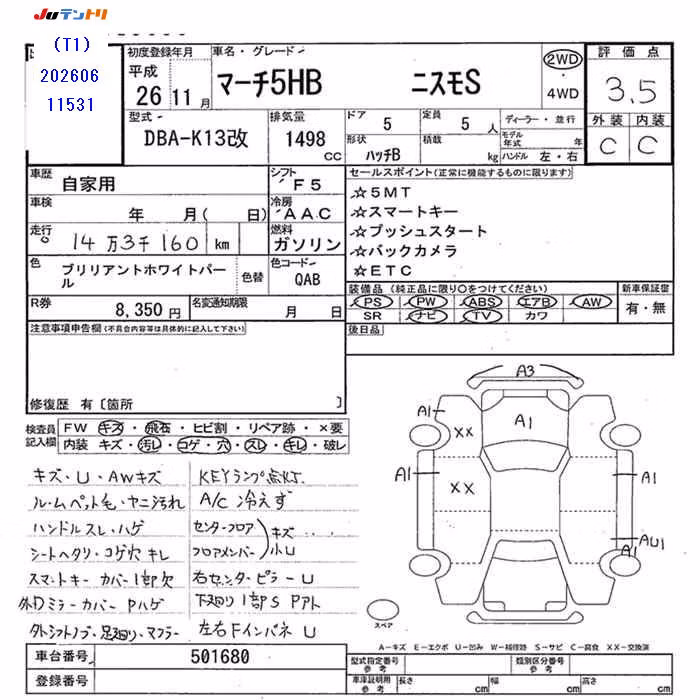 JUテントリ
(T1)
202606
11531
初度登録年月
平成
26 11月
車名・グレード
マーチ5HB ニスモS
2WD
・
4WD
評価点
3.5
外装 内装
C C
型式
DBA-K13改
排気量
1498
cc
ドア
5
定員
5 人
形状
ハッチB
積載
kg
ディーラー・並行
モデル年式 年
ハンドル 左・右
車歴
自家用
シフト
F5
車検
年 月( 日)
冷房
AAC
走行
14万3千160 km
燃料
ガソリン
色
ブリリアントホワイトパール
色替
色コード
QAB
R券
8,350円
名変通知期限
月 日
セールスポイント(正常に機能するものに限ります)
☆5MT
☆スマートキー
☆プッシュスタート
☆バックカメラ
☆ETC
装備品(純正品に限り○をつけてください)
新車保証書
PS PW ABS エアB AW
有・無
SR ナビ TV カワ
後日品
注意事項申告欄(不具合内容等は具体的に記入して下さい)
修復歴 有〔箇所 〕
検査員記入欄
FW キズ・飛石・ヒビ割・リペア跡・×要
内装 キズ・汚レ・コゲ・穴・スレ・キレ・破レ
キズ・U・AWキズ
ルームペット毛・ヤニ汚れ
ハンドルスレ・ハゲ
シートヘタリ・コゲ穴キレ
スマートキーカバー1部欠
外Dミラーカバー Pハゲ
外シフトノブ・足廻り・マフラー
KEYランプ点灯
A/C冷えず
センターフロア
フロアメンバー
)キズ・小U
右センターピラーU
下廻り1部S Pアト
左右FインパネU
A3
A1
XX
A1
A1
XX
A1
A1
AU1
スペア
A-キズ E-エクボ U-凹み W-補修跡 S-サビ C-腐食 XX-交換済
車台番号
501680
登録番号
型式指定番号
参考
類別区分番号
参考
車庫証明用
参考
長さ cm
幅 cm
高さ cm